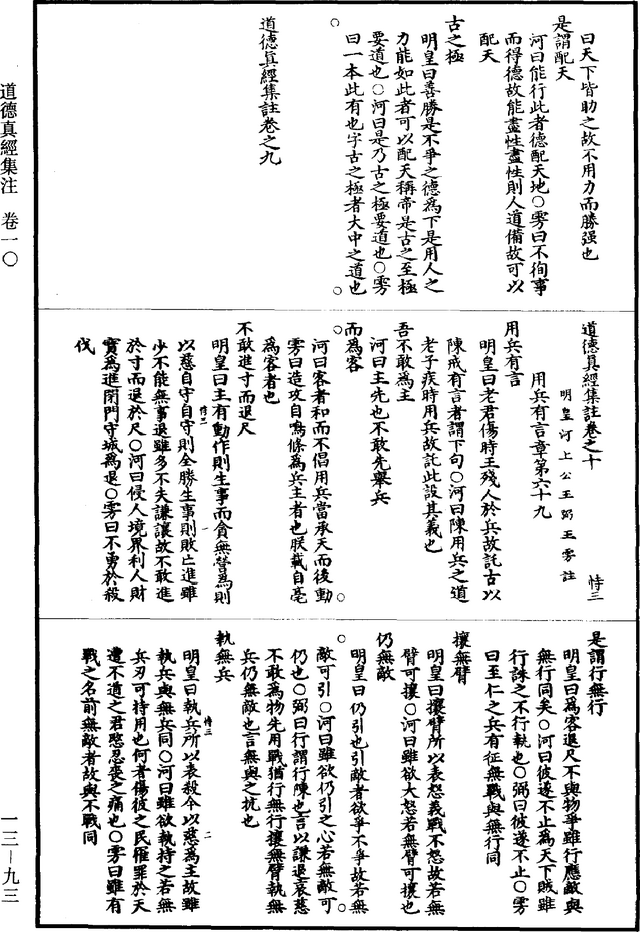 道德真經集注　卷一〇
一三—九三
曰天下皆助之故不用力而勝强也
是謂配天
河曰能行此者德配天地○雱曰不徇事
而得德故能盡性盡性則人道備故可以
配天
古之極
明皇曰善勝是不爭之德為下是用人之
力能如此者可以配天稱帝是古之至極
要道也○河曰是乃古之極要道也○雱
曰一本此有也字古之極者大中之道也
道德真經集註卷之九
道德真經集註卷之十　恃三
明皇河上公王弼王雱註
用兵有言章第六十九
用兵有言
明皇曰老君傷時王殘人於兵故託古以
陳戒有言者謂下句○河曰陳用兵之道
老子疾時用兵故託此設其義也
吾不敢為主
河曰主先也不敢先舉兵
而為客
河曰客者和而不倡用兵當承天而後動
雱曰造攻自鳴條為兵主者也朕載自亳
為客者也
不敢進寸而退尺
明皇曰主有動作則生事而貪無營為則
以慈自守自守則全勝生事則敗亡進雖
少不能無事退雖多不失謙讓故不敢進
於寸而退於尺○河曰侵人境界利人財
寶為進閉門守城為退○雱曰不勇於殺
伐
是謂行無行
明皇曰為客退尺不與物爭雖行應敵與
無行同矣○河曰彼遂不止為天下賊雖
行誅之不行執也○弼曰彼遂不止○雱
曰至仁之兵有征無戰與無行同
攘無臂
明皇曰攘臂所以表怒義戰不怒故若無
臂可攘○河曰雖欲大怒若無臂可攘也
仍無敵
明皇曰仍引也引敵者欲爭不爭故若無
敵可引○河曰雖欲仍引之心若無敵可
仍也○弼曰行謂行陳也言以謙退哀慈
不敢為物先用戰猶行無行攘無臂執無
兵仍無敵也言無與之抗也
執無兵
明皇曰執兵所以表殺今以慈為主故雖
執兵與無兵同○河曰雖欲執持之若無
兵刃可持用也何者傷彼之民罹罪於天
遭不道之君愍忍喪之痛也○雱曰雖有
戰之名前無敵者故與不戰同
恃三　二